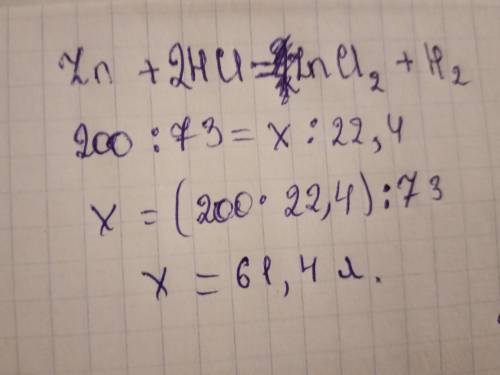 Zn + 2HCl = ZnCl₂ + H₂
200 : 73 = x : 22,4
x = (200 · 22,4) : 73
x = 61,4 л.